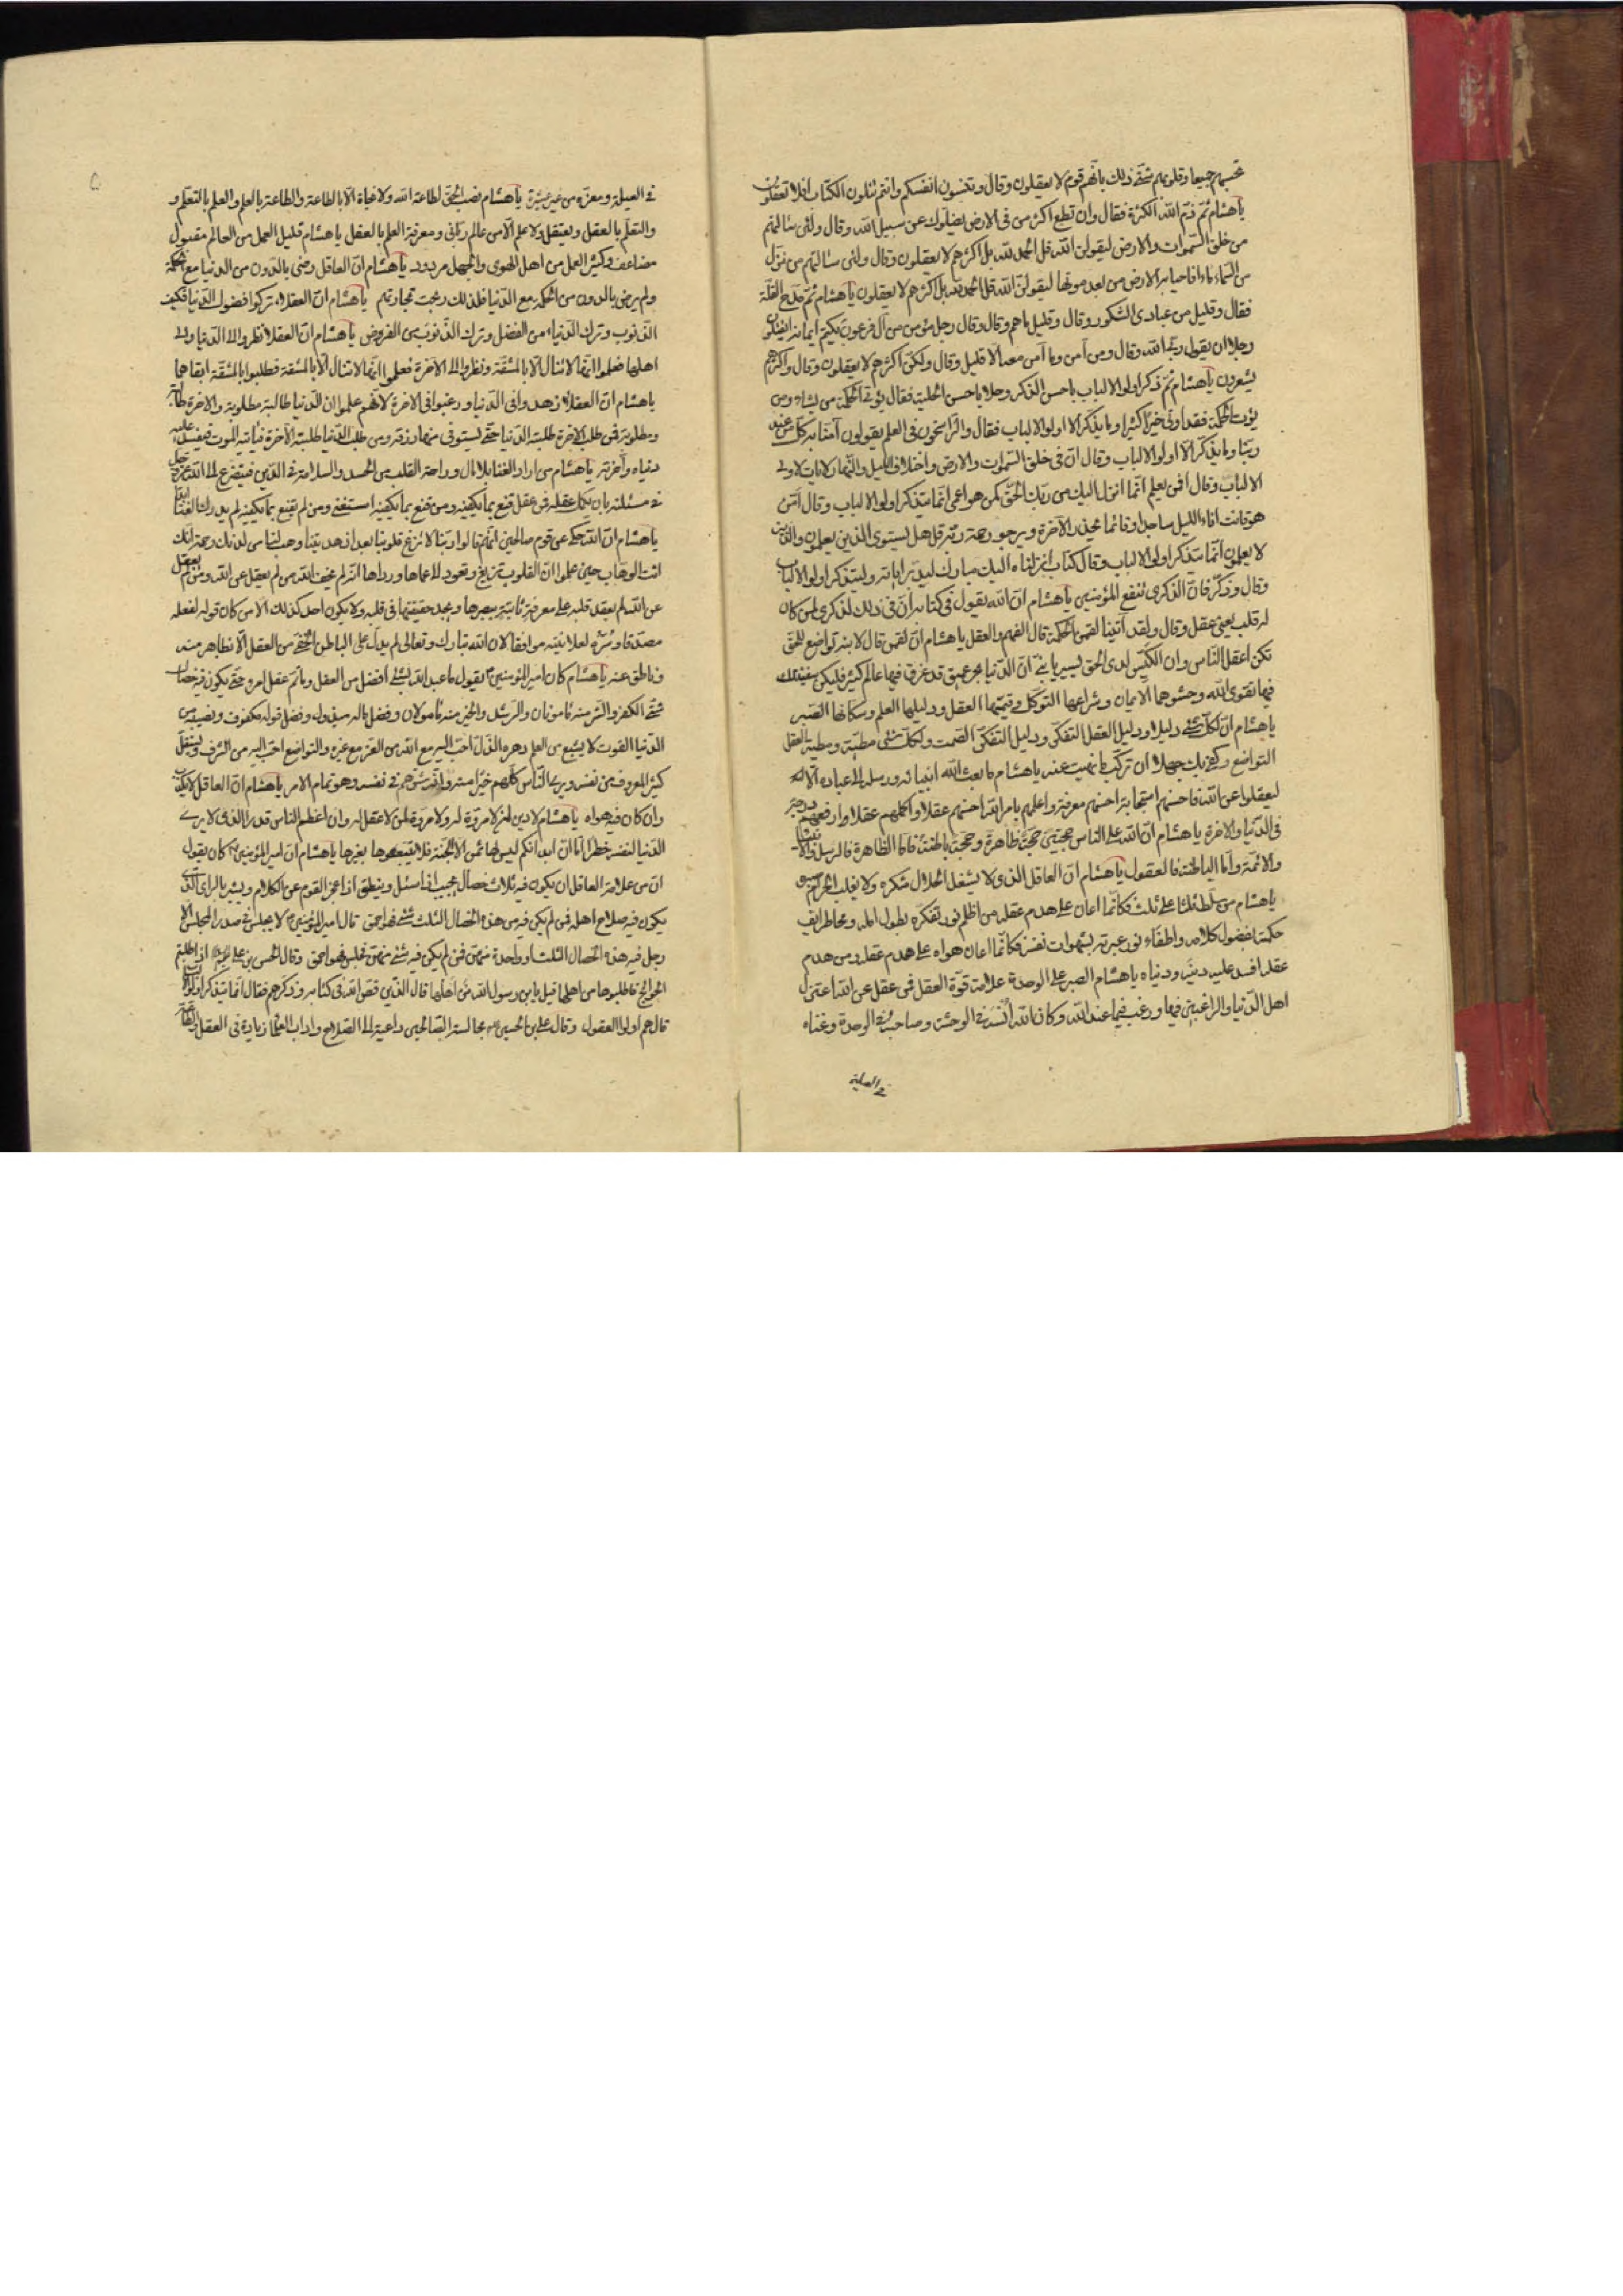 تحسبهم جميعا وقلوبهم شتّى ذلك بانّهم قوم لا يعقلون وقال وتنسون انفسكم وانتم تتلون الكتاب افلا تعقلون
يا هشام ثمّ ذمّ الله الكثرة فقال وان تطع اكثر من فى الارض يضلّوك عن سبيل الله وقال ولئن سالتهم
من خلق السّموات والارض ليقولنّ الله قل الحمد لله بل اكثرهم لا يعقلون وقال ولئن سالتهم من نزّل
من السّماء ماء فاحيا به الارض من بعد موتها ليقولنّ الله قل الحمد لله بل اكثرهم لا يعقلون يا هشام ثمّ مدح القلّة
فقال وقليل من عبادى الشكور وقال وقليل ما هم وقال وقال رجل مؤمن من آل فرعون يكتم ايمانه اتقتلون
رجلا ان يقول ربّى الله وقال ومن آمن وما آمن معه الّا قليل وقال ولكنّ اكثرهم لا يعقلون وقال واكثرهم
يشعرون يا هشام ثمّ ذكر اولو الالباب باحسن الذكر وحلاهم باحسن الحلية فقال يؤتى الحكمة من يشاء ومن
يؤت الحكمة فقد اوتى خيرا كثيرا وما يذكّر الا اولو الالباب فقال والرّاسخون فى العلم يقولون آمنّا به كلّ من عند
ربّنا وما يذكّر الّا اولو الالباب وقال انّ فى خلق السّموات والارض واختلاف الليل والنّهار لايات لاولى
الالباب وقال افمن يعلم انّما انزل اليك من ربّك الحقّ كمن هو اعمى انّما يتذكر اولو الالباب وقال امّن
هو قانت اناء الليل ساجدا وقائما يحذر الآخرة ويرجو رحمة ربّه قل هل يستوى الذين يعلمون والّذين
لا يعلمون انّما يتذكر اولو الالباب وقال كتاب انزلناه اليك مبارك ليدبّروا اياته وليتذكر اولو الالباب
وقال وذكّر فانّ الذكرى تنفع المؤمنين يا هشام انّ الله يقول فى كتابه انّ فى ذلك لذكرى لمن كان
له قلب يعنى عقل وقال ولقد آتينا لقمن الحكمة قال الفهم والعقل يا هشام انّ لقمن قال لابنه تواضع للحقّ
تكن اعقل النّاس وان الكيّس لدى الحق يسير يا بنىّ انّ الدّنيا بحر عميق قد غرق فيها عالم كثير فليكن سفينتك
فيها تقوى الله وحشوها الايمان وشراعها التوكّل وقيّمها العقل ودليلها العلم وسكّانها الصّبر
يا هشام انّ لكلّ شئ دليلا ودليل العقل التفكّر ودليل التفكّر الصّمت ولكلّ شئ مطيّة ومطيّة العقل
التواضع وكفى بك جهلا ان تركب ما نهيت عنه يا هشام ما بعث الله انبيائه ورسله الى عباده الّا
ليعقلوا عن الله فاحسنهم استجابة احسنهم معرفة واعلمهم بامر الله احسنهم عقلا واكملهم عقلا وارفعهم درجة
فى الدّنيا والاخرة يا هشام انّ لله على الناس حجّتين حجّة ظاهرة وحجّة باطنة فامّا الظاهرة فالرسل والانبياء
والائمّة وامّا الباطنة فالعقول يا هشام انّ العاقل الذى لا يشغل الحلال شكره ولا يغلب الحرام صبره
يا هشام من سلّط ثلثا على ثلث فكانّما اعان على هدم عقله من اظلم نور تفكّره بطول امله ومحا طرايف
حكمته بفضول كلامه واطفاء نور عبرته بشهوات نفسه فكانّما اعان هواه على هدم عقله ومن هدم
عقله افسد عليه دينه ودنياه يا هشام الصبر على الوحدة علامة قوّة العقل فمن عقل عن الله اعتزل
اهل الدّنيا والراغبين فيها ورغب فيما عند الله وكان الله انسه فى الوحشة وصاحبه فى الوحدة وغناه
فى العيلة
فى العيلة ومعزّه من غير عشيرة يا هشام نصب الحقّ لطاعة الله ولا نجاة الّا بالطاعة والطاعة بالعلم والعلم بالتعلّم و
والتعلّم بالعقل ويعتقل ولا علم الّا من عالم ربّانى ومعرفة العلم بالعقل يا هشام قليل العمل من العالم مقبول
مضاعف وكثير العمل من اهل الهوى والجهل مردود يا هشام انّ العاقل رضى بالدّون من الدنيا مع الحكمة
ولم يرض بالدون من الحكمة مع الدّنيا فلذلك ربحت تجارتهم يا هشام انّ العقلاء تركوا فضول الدّنيا فكيف
الذّنوب وترك الدّنيا من الفضل وترك الذّنوب من الفرض يا هشام انّ العقلاء نظروا الى الدّنيا والى
اهلها فعلموا انّها لا تنال الّا بالمشقّة ونظروا الى الاخرة فعلموا انّها لا تنال الّا بالمشقة فطلبوا بالمشقّة ابقاهما
يا هشام انّ العقلاء زهدوا فى الدّنيا ورغبوا فى الاخرة لانّهم علموا ان الدّنيا طالبة مطلوبة والاخرة طالبة
ومطلوبة فمن طلب الاخرة طلبته الدّنيا حتّى يستوفى منها رزقه ومن طلب الدّنيا طلبته الآخرة فيأتيه الموت فيفسد عليه
دنياه وآخرته يا هشام من اراد الغنا بلا مال وراحة القلب من الحسد والسلامة فى الدّين فليتضرّع الى الله عزّ وجلّ
فى مسئلته بان يكمل عقله فمن عقل قنع بما يكفيه ومن قنع بما يكفيه استغنى ومن لم يقنع بما يكفيه لم يدرك الغنا ابدا
يا هشام انّ الله حكى عن قوم صالحين انّهم قالوا ربّنا لا تزغ قلوبنا بعد اذ هديتنا وهب لنا من لدنك رحمة انّك
انت الوهّاب حين علموا انّ القلوب تزيغ وتعود الى عماها ورداها انّه لم يخف الله من لم يعقل عن الله ومن لم يعقل
عن الله لم يعقد قلبه على معرفة ثابتة يبصرها ويجد حقيقتها فى قلبه ولا يكون احد كذلك الا من كان قوله لفعله
مصدّقا وسرّه لعلانيته موافقا لان الله تبارك وتعالى لم يدلّ على الباطن الخفىّ من العقل الّا بظاهر منه
وناطق عنه يا هشام كان امير المؤمنين يقول ما عبد الله بشئ افضل من العقل وما تمّ عقل امرء حتّى يكون فيه خصال
شتّى الكفر والشر منه مأمونان والرّشد والخير منه مأمولان وفضل ماله مبذول وفضل قوله مكفوف ونصيبه من
الدّنيا القوت لا يشبع من العلم دهره الذّلّ احبّ اليه مع الله من العزّ مع غيره والتواضع احبّ اليه من الشّرف ويستقلّ
كثير المعروف من نفسه ويرى النّاس كلّهم خيرا منه وانّه شرّهم فى نفسه وهو تمام الامر يا هشام انّ العاقل لا يكذب
وان كان فيه هواه يا هشام لا دين لمن لا مروّة له ولا مروّة لمن لا عقل له وانّ اعظم الناس قدرا الذى لا يرى
الدّنيا لنفسه خطرا امّا انّ ابدانكم ليس لها ثمن الّا الجنّة فلا تبيعوها بغيرها يا هشام انّ امير المؤمنين كان يقول
انّ من علامة العاقل ان يكون فيه ثلاث خصال يجيب اذا سئل وينطق اذا عجز القوم عن الكلام ويشير بالراى الّذى
يكون فيه صلاح اهله فمن لم يكن فيه من هذه الخصال الثلث شئ فهو احمق قال امير المؤمنين لا يجلس فى صدر المجلس الا
رجل فيه هذه الخصال الثلث او واحدة منهنّ فمن لم يكن فيه شئ منهنّ فجلس فهو احمق وقال الحسن بن على اذا طلبتم
الحوائج فاطلبوها من اهلها قيل يا بن رسول الله من اهلها قال الّذين قصّ الله فى كتابه وذكرهم فقال انّما يتذكر اولو الالباب
قال هم اولوا العقول وقال على بن الحسين مجالسة الصّالحين داعية الى الصّلاح واداب العلماء زيادة فى العقل